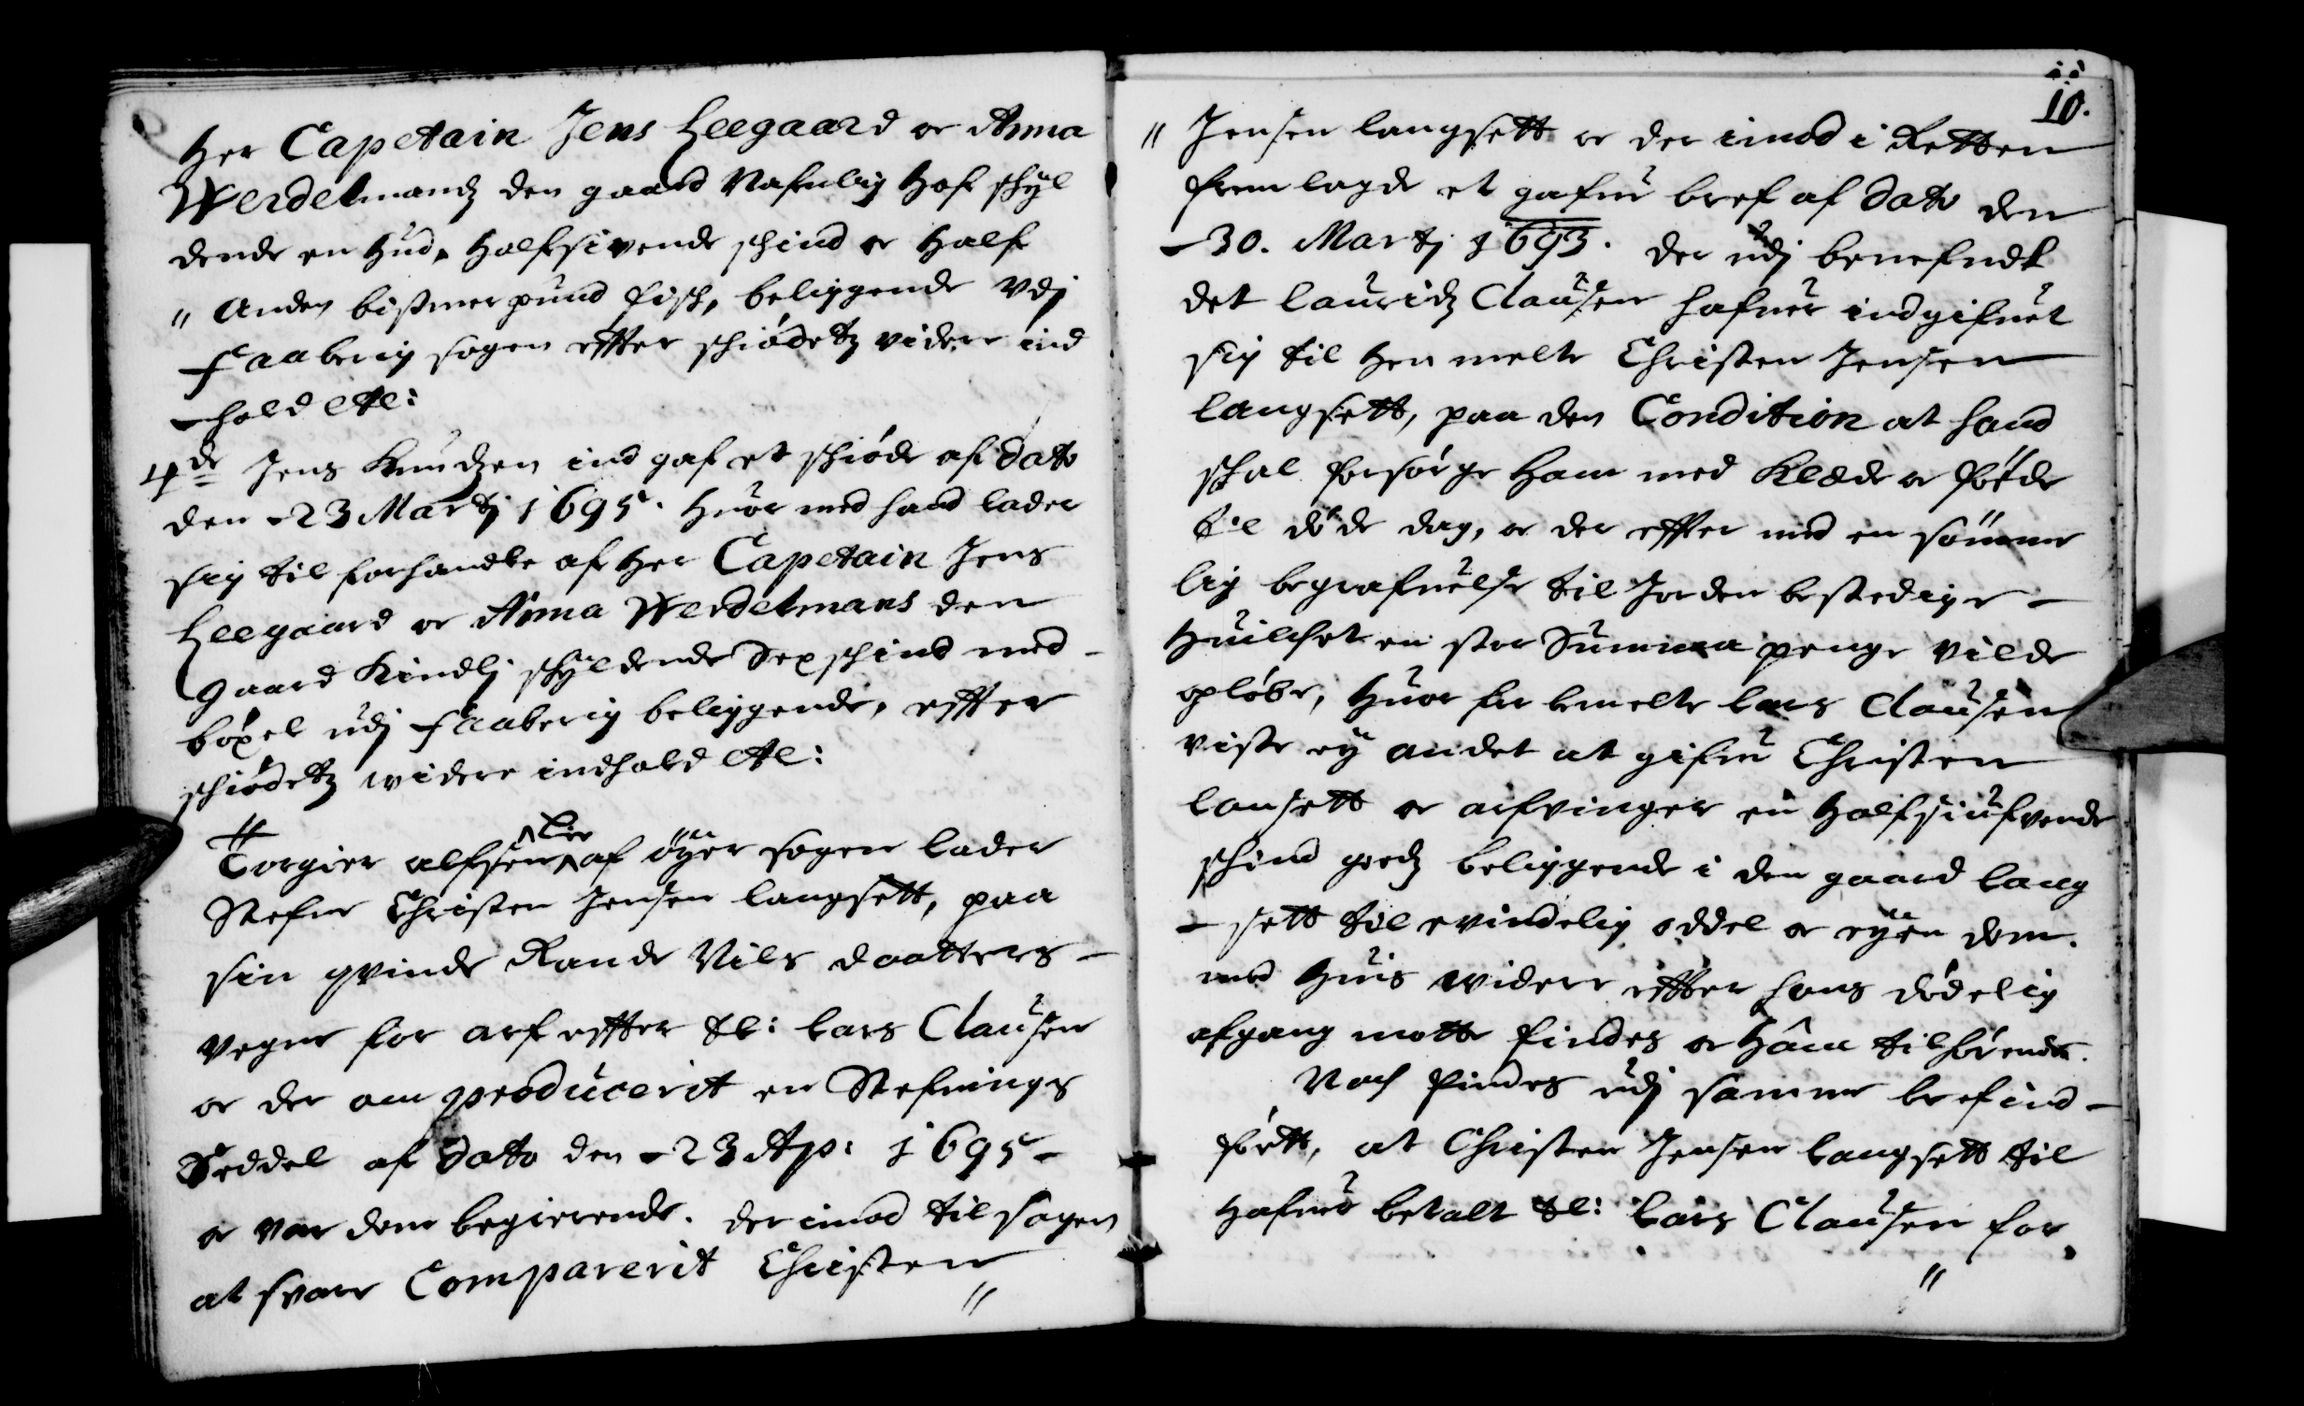 Her Capetain Jens Leegaard oc Anna
Werdelmandz den gaard Nafnlig Hof schyl
dende en Hud, Halfsivende schind oc Half
" Anden bismer pund fisch, beliggende Vdj
Faaberig sogen effter schiødetz videre ind
-hold etc:
4de Jens Knudzen ind gaf et schiøde af dato
den -23 Martj 1695. Huor med hand lader
sig til forhandle af Her Capetain Jens
Leegaard oc Anna Werdelmans den
gaard Kindlj schyldende Sex schind med-
böxel udj Faaberig beliggende, effter
schiødetz widere indhold etc:
Torgier alfsen Lie af öÿer sogen lader
Stefne Christen Jensen langsett, paa
sin qvinde Rande Nils daatters-
vegne for arf effter Sl: Lars Clausen
oc der om producerit en Stefnings
Seddel af dato den -23 Ap: 1695-
oc var dom begierende. der imod til sagen
at svare Comparerit Christen
"
11
10.
" Jensen langsett oc der imod i Retten
frem lagde et gafue bref af dato den
-30. Martj 1693. der udj benefndt
det lauridz Clausen hafuer indgifuet
sig til her melte Christen Jensen
langsett, paa den Condition at hand
schal forsørge Ham med Klæde oc føde
til døde dag, oc der effter med en sømme
lig begrafuelse til Jorden bestedige-
Huilchet en stor Summa penge vilde
opløbe, Huor for bemelte Lars Clausen
viste ey andet at gifue Christen
lansett oc arfvinger en Halfsiufvende
schind goedz beliggende i den gaard lang
-sett til evindelig oddel oc eÿen dom.
med Huis widere effter hans dødelig
afgang motte findes oc Ham tilhørende.
Noch findes udj samme bref ind-
ført, at Christen Jensen langsett til
Hafuer betalt Sl: Lars Clausen for
"